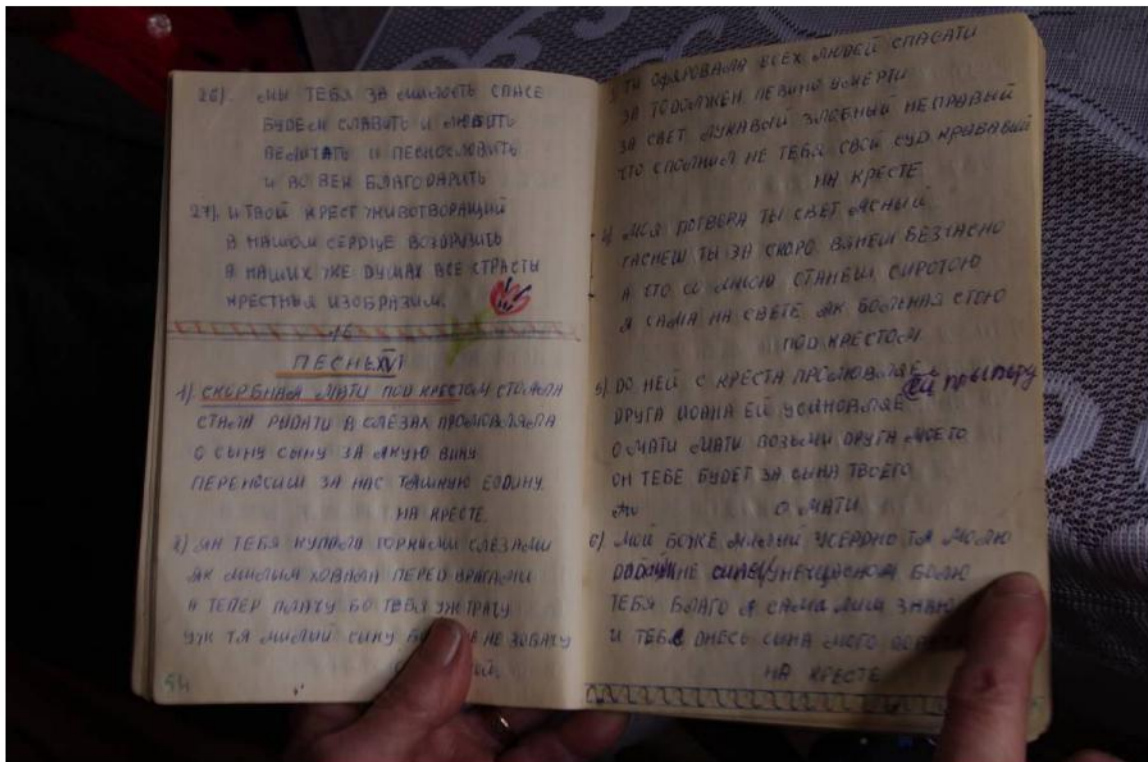 26). МЫ ТЕБЯ ЗА МИЛОСТЬ СПАСЕ
БУДЕМ СЛАВИТЬ И ЛЮБИТЬ
ВЕЛИТАТЬ И ПЕСНОСЛОВИТЬ
И ВО ВЕК БЛАГОДАРИТЬ
27). И ТВОЙ КРЕСТ ЖИВОТВОРАЩИЙ
В НАШОМ СЕРДЦЕ ВОДОРУЗИТЬ
В НАШИХ ЖЕ ДУШАХ ВСЕ СТРАСТЫ
КРЕСТНЫЯ ИЗОБРАЗИМ.
16
ПЕСНЬ XVI
1). СКОРБНАЯ МАТИ ПОД КРЕСТОМ СТОЯЛА
СТАЛА РИДАТИ В СЛЕЗАХ ПРОМОВЛЯЛА
О СЫНУ СЫНУ ЗА ЯКУЮ ВИНУ
ПЕРЕНОСИШ ЗА НАС ТЯШКУЮ ГОДИНУ.
НА КРЕСТЕ.
2) ЯН ТЕБЯ КУПАЛА ГОРКИМИ СЛЕЗАМИ
ЯК МИЛЫМ ХОВАЛА ПЕРЕД ВРАГАМИ
А ТЕПЕР ПЛАЧУ БО ТЕБЯ УЖ ТРАЧУ
УЖ ТЯ МИЛЫЙ СЫНУ НЕ ЗОБАЧУ
54
ТИ ОФЯРОВАЛА ВСЕХ ЛЮДЕЙ СПАСАТИ
ЗА ТО ДОЛЖЕН ПЕВИНО УМЕРТИ
ЗА СВЕТ ЛУКАВЫЙ ЗЛОБНЫЙ НЕПРАВЫЙ
ЧТО СПОЛНИЛ НЕ ТЕБЯ СВОЙ СУД КРЫВАВЫЙ
НА КРЕСТЕ
4) МОЯ ПОТВЕРА ТЫ СВЕТ ЯСНЫЙ
ГАСНЕШ ТЫ ЗА СКОРО. ВЯНЕШ БЕЗЧАСНО
А ЧТО СО МНОЮ СТАНЕШ СИРОТОЮ
Я САМА НА СВЕТЕ ЯК БОЛЬНАЯ СТОЮ
ПОД КРЕСТОМ.
5) ДО НЕЙ С КРЕСТА ПРОМОВЛЯЕ
ДРУГА ИОАНА ЕЙ УСИНОВЛЯЕ
О МАТИ МАТИ ВОЗЬМИ ДРУГА МОЕГО
ОН ТЕБЕ БУДЕТ ЗА СЫНА ТВОЕГО
О МАТИ
6) МОЙ БОЖЕ МИЛЫЙ УСЕРДНО ТЯ МОЛЮ
БОЛЮ
ТЕБЯ БЛАГО Я САМА ЛИШ ЗНАЮ
И ТЕБЕ ДНЕСЬ СЫНА МОГО
НА КРЕСТЕ